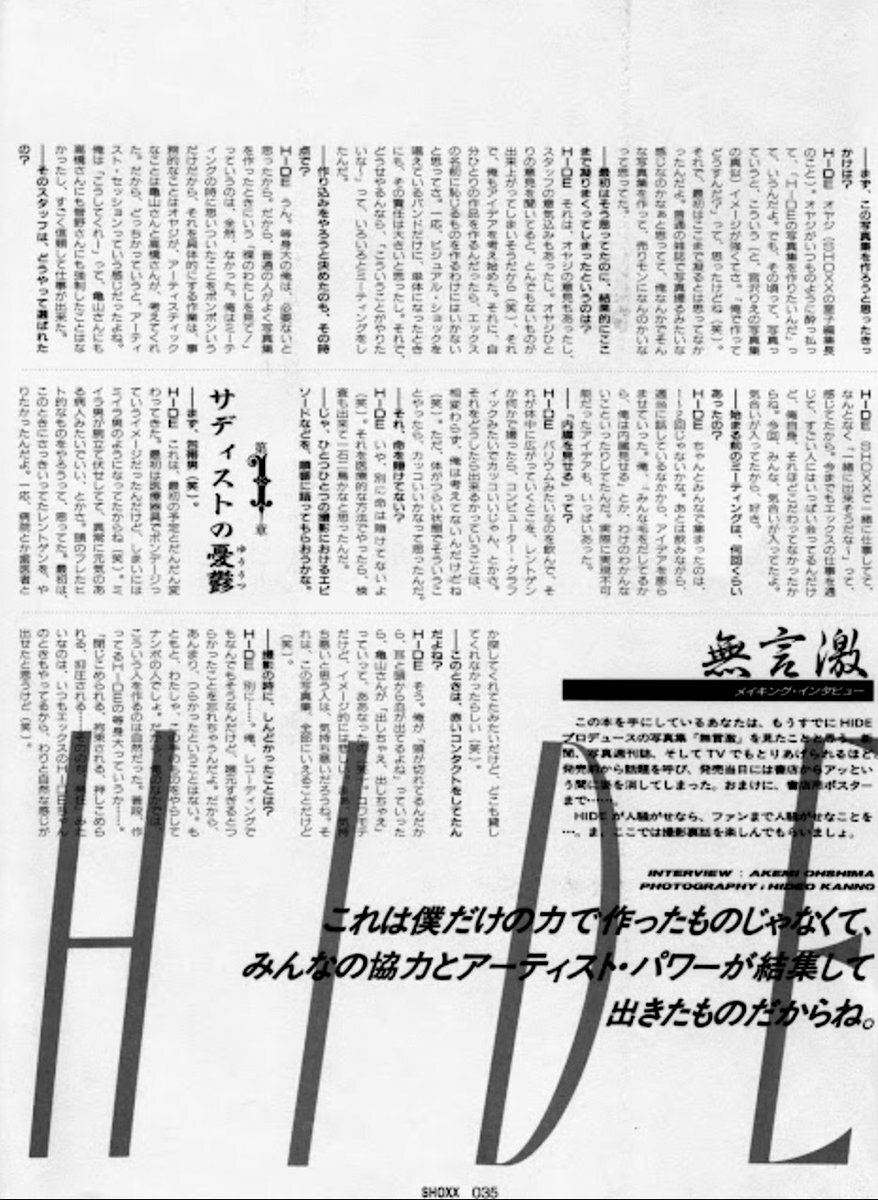 ――まず、この写真集を作ろうと思ったきっ
かけは?
HIDE オヤジ(SHOXXの星子編集長
のこと)。オヤジがいつものように酔っ払っ
て、「HIDEの写真集を作りたいんだ」っ
て、いうんだよ。でも、その頃って、写真っ
ていうと、こういう…と、宮沢りえの写真集
の真似)イメージが強くてさ。「俺で作って
どうすんだ?」って、思ったけどね(笑)。
それで、最初はここまで凝るとは思ってなか
ったんだよ。普通の雑誌で写真撮るみたいな
感じなのかなぁと思ってて、俺なんかでそん
な写真集を作って、売りモンになんのかいな
って思ってた。
――最初はそう思ってたのに、結果的にここ
まで凝りまくってしまったというのは?
HIDE それは、オヤジの意見もあったし、
スタッフの意気込みもあったし。オヤジひと
りの意見を聞いてると、とんでもないものが
出来上がってしまいそうだから(笑)、それ
で、俺もアイデアを考え始めた。それに、自
分ひとりの作品を作るんだったら、エックス
の名前に恥じるものを作るわけにはいかない
と思ってさ。一応、ビジュアル・ショックを
唱えているバンドだけに、単体になったとき
にも、その責任は大きいと思ったし。それで、
どうせやるんなら、「こういうことがやりた
いな~」って、いろいろとミーティングをし
たんだ。
――作り込みをやろうと決めたのも、その時
点で?
HIDE うん。等身大の俺は、必要ないと
思ったから。だから、普通の人がよく写真集
を作ったときにいう「裸のわたしを見て!」
っていうのは、全然、なかった。俺はミーテ
ィングの時に思いついたことをポンポンいう
だけだから、それを具体的にする作業は、事
務的なことはオヤジが、アーティスティック
なことは亀山さんと高橋さんが、考えてくれ
た。だから、どっちかっていうと、アーティ
スト・セッションっていう感じだったよね。
俺は「こうしてくれー」って、亀山さんにも
高橋さんにも菅野さんにも強制したことはな
かったし、すごく信頼して仕事が出来た。
――そのスタッフは、どうやって選ばれた
の?
HIDE SHOXXで一緒に仕事してて、
なんとなく「一緒に出来そうだな~」って、
感じてたから。今までもエックスの仕事を通
じて、すごい人にはいっぱい会ってるんだけ
ど、俺自身、それほどこだわってなかったか
らね。今回、みんな、気合いが入ってたよ。
気合いが入ってたから、好き。
――始まる前のミーティングは、何回くらい
あったの?
HIDE ちゃんとみんなで集まったのは、
1~2回じゃないかな。あとは飲みながら、
適当に話しているなかから、アイデアを膨ら
ませていった。俺、みんな本をだしてるか
ら、俺は内臓見せる」とか、わけのわかんな
いこといったりしてたんだ。実際に実現不可
能だったアイデアも、いっぱいあった。
――「内臓を見せる」って?
HIDE バリウムみたいなのを飲んで、そ
れが体中に広がっていくとこを、レントゲン
か何かで撮ったら、コンピューター・グラフ
ィックみたいでカッコいいじゃん、とかさ。
それをどうしたら出来るかっていうことは、
相変わらず、俺は考えてないんだけどね
(笑)。ただ、体がつらい状態でそういうこ
とやったら、カッコいいかなって思ったんだ。
――それ、命を賭けてない?
HIDE いや、別に命は賭けてないよ
(笑)。それを医療的な方法でやったら、検
査も出来て一石二鳥かなと思ったんだ。
――じゃ、ひとつひとつの撮影におけるエピ
ソードなどを、順番に語ってもらおうかな。
第1章
サディストの憂鬱
ゆううつ
――まず、包帯男(笑)。
HIDE これは、最初の予定とだんだん変
わってきた。最初は医療器具でボンデージっ
ていうイメージだったんだけど、しまいには
ミイラ男のようになってたからね(笑)。ミ
イラ男が腕立て伏せしてて、異常に元気のあ
る病人みたいでいい、とかさ。頭のプレたヒ
ト的なものをやろうって、思ってた。最初は、
このときにさっきいってたレントゲンを、や
りたかったんだよ。一応、病院とか歯医者と
か探してくれてたみたいだけど、どこも貸し
てくれなかったらしい(笑)。
――このときは、赤いコンタクトをしてたん
だよね?
HIDE そう。俺が、「頭が切れてるんだか
ら、耳と頭から血が出てるよね」っていった
ら、亀山さんが「出しちゃえ、出しちゃえ」
っていって、ああなったの(笑)。コワモテ
だけど、イメージ的には悲しい。まあ、気持
ち悪いと思う人は、気持ち悪いだろうね。そ
れは、この写真集、全部にいえることだけど
(笑)。
――撮影の時に、しんどかったことは?
HIDE 別に……。俺、レコーディングで
もなんでもそうなんだけど、喉元すぎるとつ
らかったことを忘れちゃうんだよ。だから、
あんまり、つらかったということはない。も
ともと、わたしゃ、この手のものをやらして
ナンボの人でしょ。だから、俺のなかでは、
こういう人を作るのは自然だった。普段、作
ってるHIDEの等身大っていうか……。
「閉じこめられる、拘束される、押しこめら
れる、抑圧される……そののち、発狂」みた
いなのは、いつもエックスのHIDEちゃん
のときもやってるから、わりと自然な感じが
出せたと思うけど(笑)。
無言激
メイキング・インタビュー
この本を手にしているあなたは、もうすでにHIDE
プロデュースの写真集『無言激』を見たことと思う。新
聞、写真週刊誌、そしてTVでもとりあげられるほど
発売前から話題を呼び、発売当日には書店からアッとい
う間に姿を消してしまった。おまけに、書店用ポスター
まで……
HIDEが人騒がせなら、ファンまで人騒がせなことを
…。ま、ここでは撮影裏話を楽しんでもらいましょ。
INTERVIEW : AKEMI OHSHIMA
PHOTOGRAPHY : HIDEO KANNO
これは僕だけの力で作ったものじゃなくて、
みんなの協力とアーティスト・パワーが結集して
出きたものだからね。
HIDE
SHOXX 035